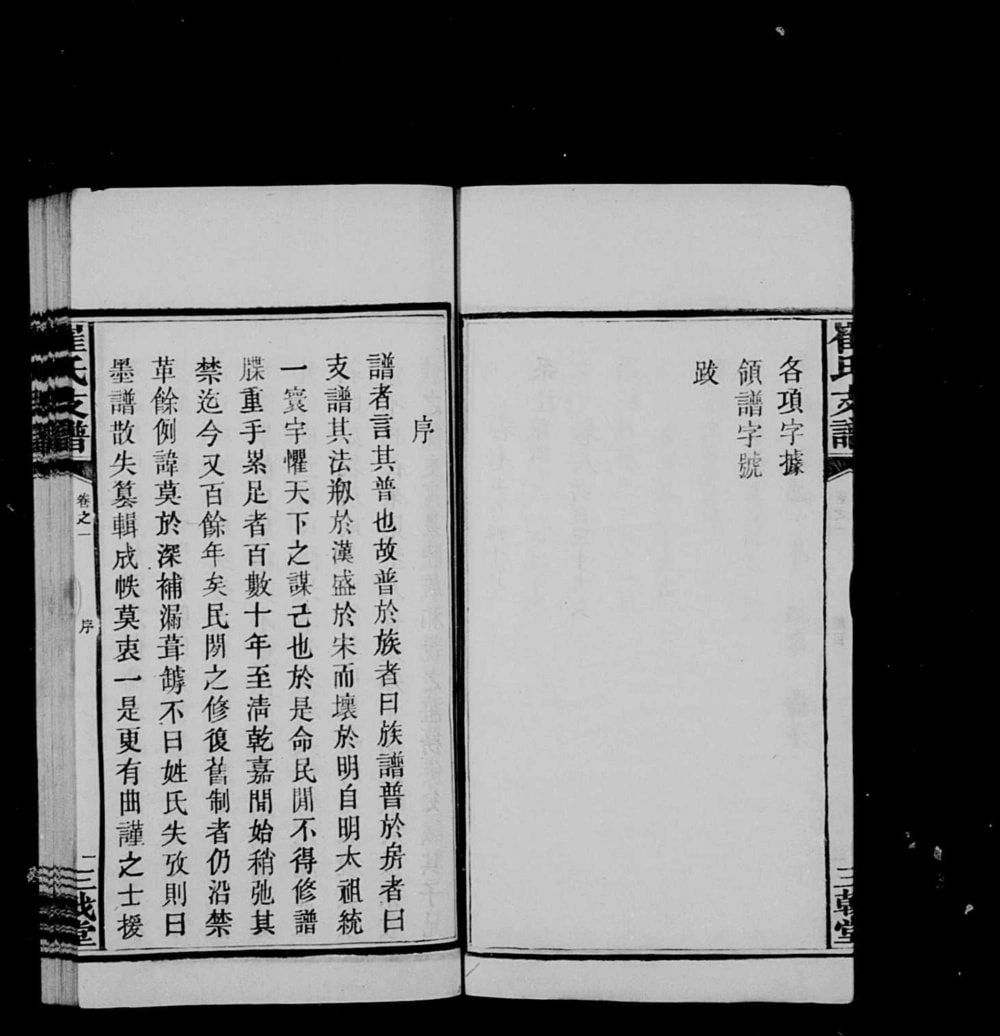 崔氏支譜
三戟堂
各項字據
領譜字號
跋
序
譜者言其普也故普於族者曰族譜普於房者曰
支譜其法剏於漢盛於宋而壞於明自明太祖統
一寰宇懼天下之謀己也於是命民間不得修譜
牒重手累足者百數十年至清乾嘉間始稍弛其
禁迄今又百餘年矣民間之修復舊制者仍沿禁
革餘例諱莫於深補漏葺罅不曰姓氏失攷則曰
墨譜散失篡輯成帙莫衷一是更有曲謹之士援
崔氏支譜
卷之一
序
二
三戟堂